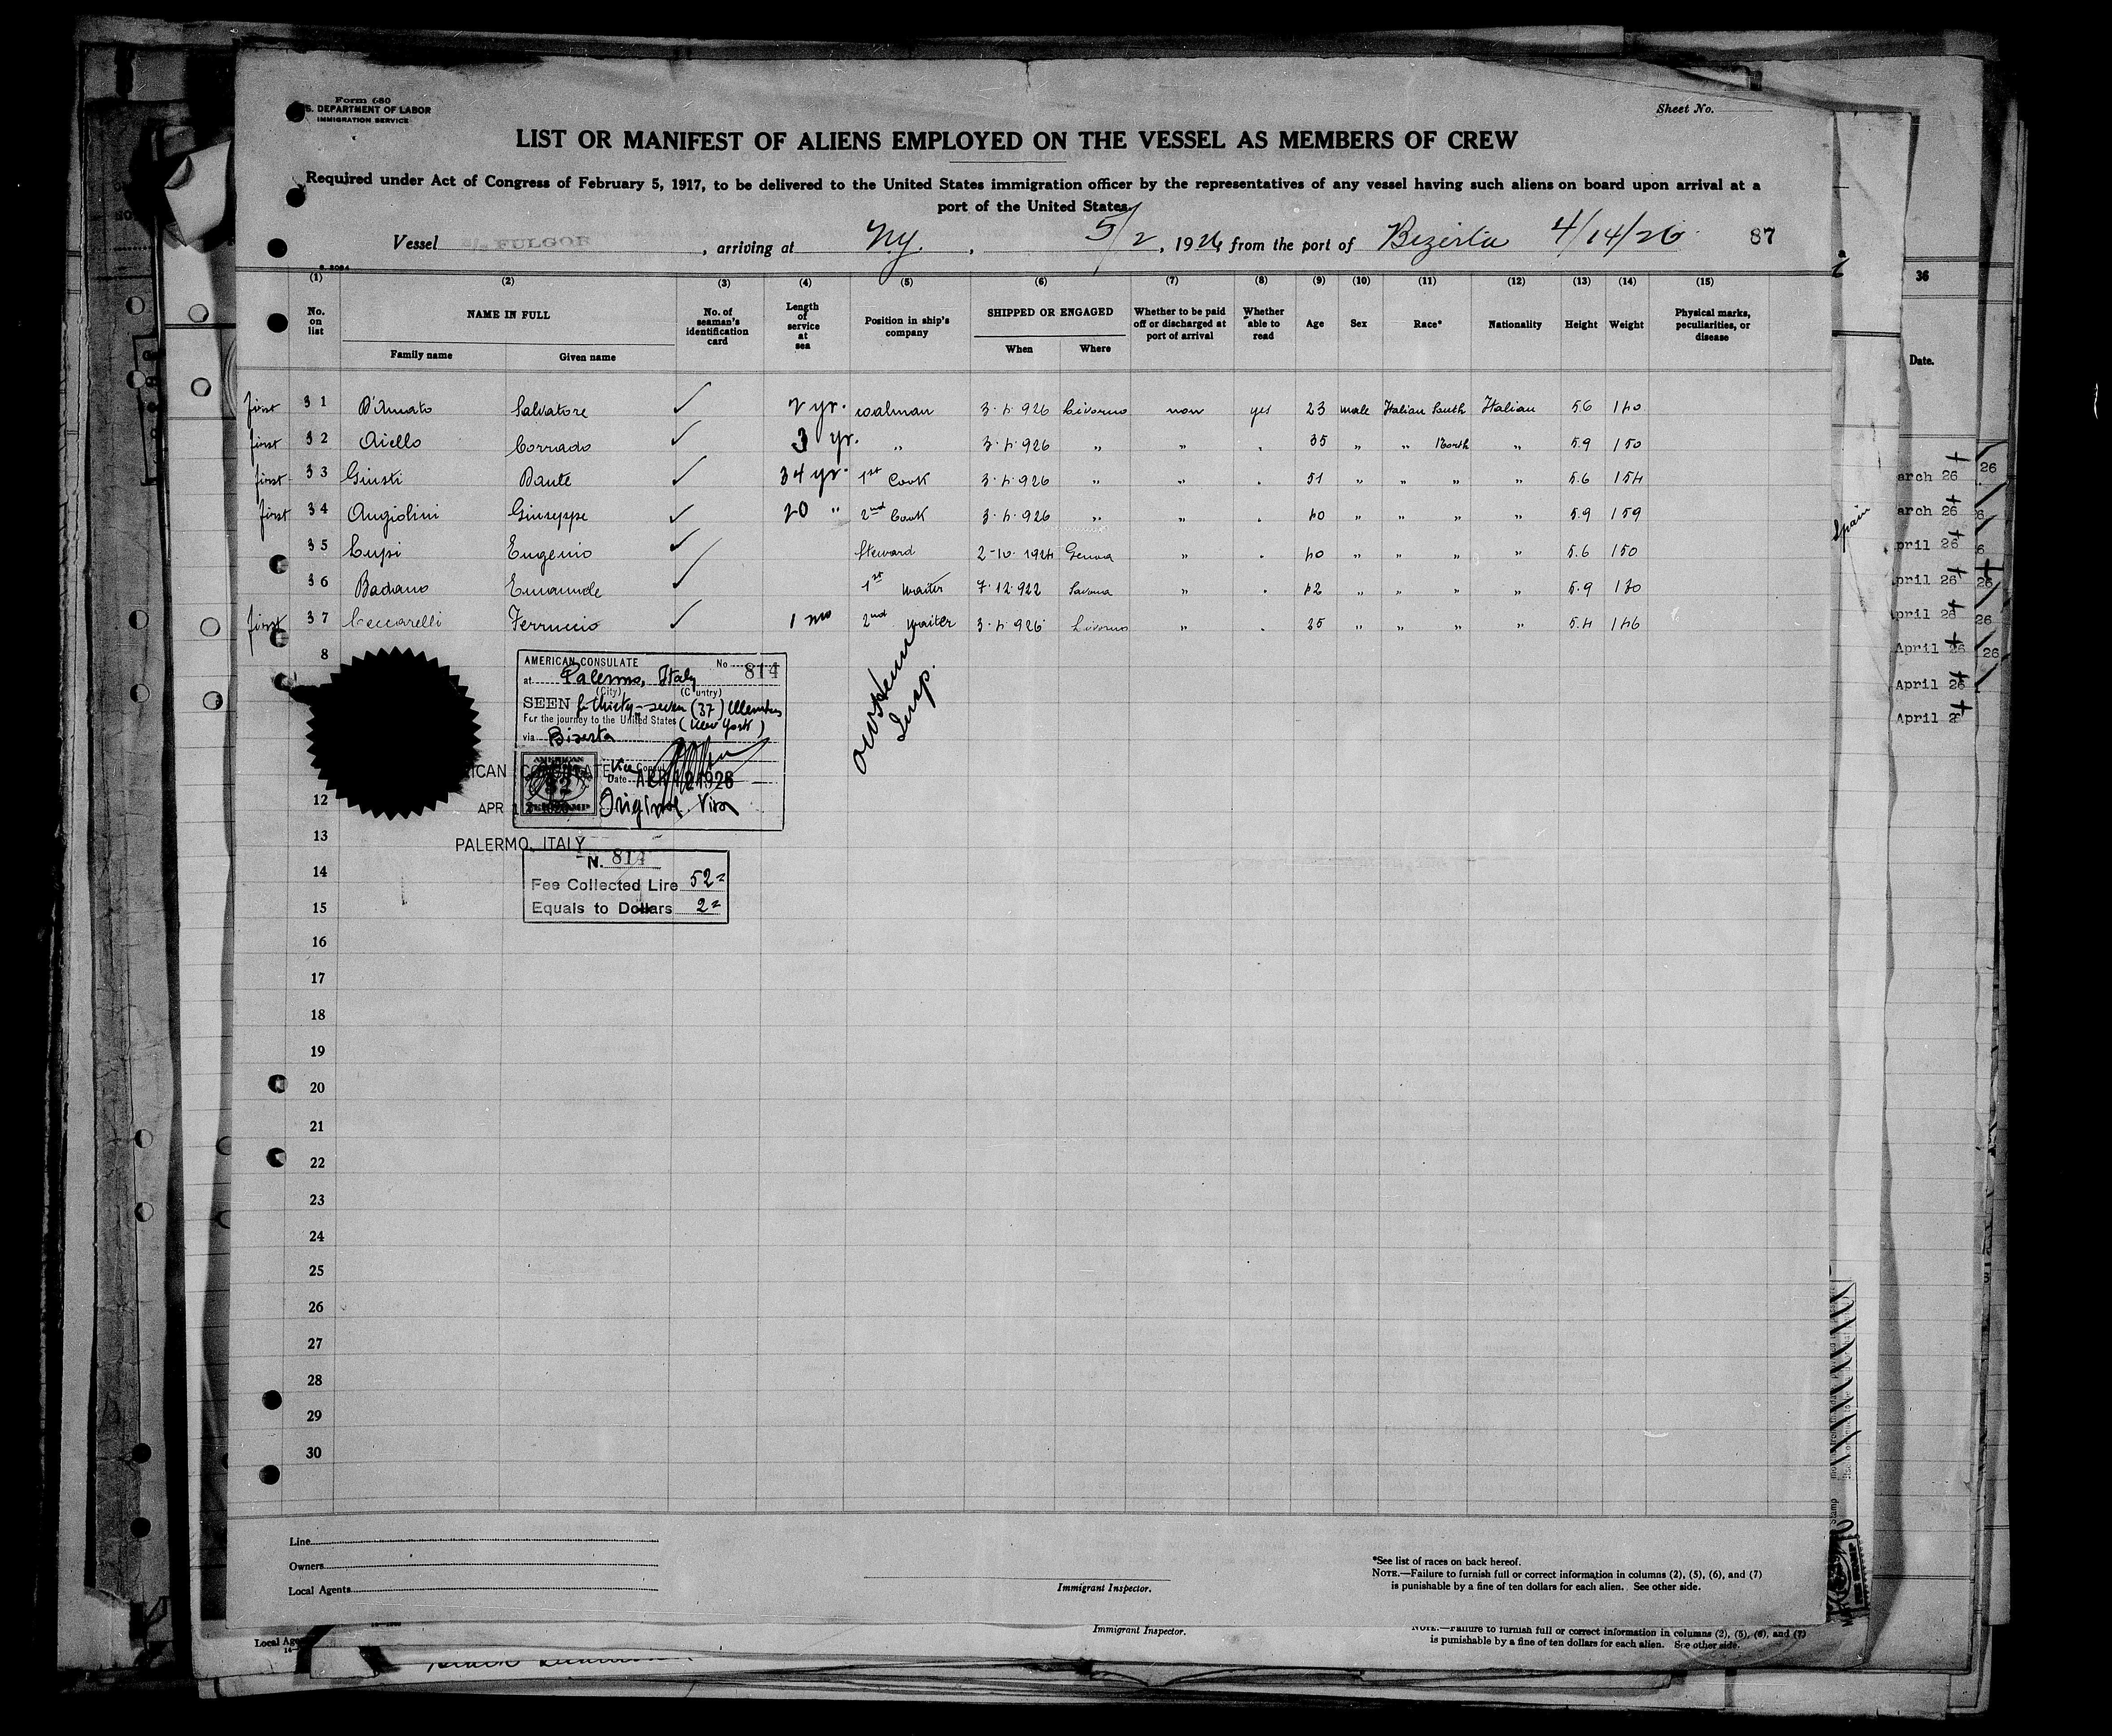 Form 680
S. DEPARTMENT OF LABOR
IMMIGRATION SERVICE
Sheet No.
LIST OR MANIFEST OF ALIENS EMPLOYED ON THE VESSEL AS MEMBERS OF CREW
Required under Act of Congress of February 5, 1917, to be delivered to the United States immigration officer by the representatives of any vessel having such aliens on board upon arrival at a
port of the United States.
Vessel FULGOR, arriving at NY., 5/2, 1926 from the port of Bizerta 4/14/26 87
(1) (2) (3) (4) (5) (6) (7) (8) (9) (10) (11) (12) (13) (14) (15)
No. on list NAME IN FULL Family name Given name No. of seaman's identification card Length of service at sea Position in ship's company SHIPPED OR ENGAGED When Where Whether to be paid off or discharged at port of arrival Whether able to read Age Sex Race* Nationality Height Weight Physical marks, peculiarities, or disease
first 31 D'Amato Salvatore ✓ 2 yr. coalman 3.4.926 Livorno non yes 23 male Italian South Italian 5.6 140
first 32 Aiello Corrado ✓ 3 yr. " 3.4.926 " " " 35 " " North " 5.9 150
first 33 Giusti Dante ✓ 34 yr. 1st Cook 3.4.926 " " " 51 " " " " 5.6 154
first 34 Angiolini Giuseppe ✓ 20 " 2nd Cook 3.4.926 " " " 40 " " " " 5.9 159
35 Lupi Eugenio ✓ Steward 2-10-1924 Genova " " 40 " " " " 5.6 150
36 Badano Emanuele ✓ 1st waiter 7.12.922 Savona " " 42 " " " " 5.9 130
first 37 Ceccarelli Ferruccio ✓ 1 mo 2nd waiter 3.4.926 Livorno " " 25 " " " " 5.4 146
8
AMERICAN CONSULATE No 814
at Palermo, Italy
(City) (Country)
SEEN for thirty-seven (37) Members
For the journey to the United States (New York)
via Bizerta
Vice Consul
Date APR 12 1926
Original Visa
Insp.
APR 1
PALERMO, ITALY
N. 814
Fee Collected Lire 52=
Equals to Dollars 2=
12
13
14
15
16
17
18
19
20
21
22
23
24
25
26
27
28
29
30
Line
Owners
Local Agents
Immigrant Inspector.
*See list of races on back hereof.
NOTE.—Failure to furnish full or correct information in columns (2), (5), (6), and (7)
is punishable by a fine of ten dollars for each alien. See other side.
Immigrant Inspector.
NOTE.—Failure to furnish full or correct information in columns (2), (5), (6), and (7)
is punishable by a fine of ten dollars for each alien. See other side.
Local Age
36
Date.
Spain
arch 26
arch 26
pril 26
pril 26
April 26
April 26
April 26
April 2